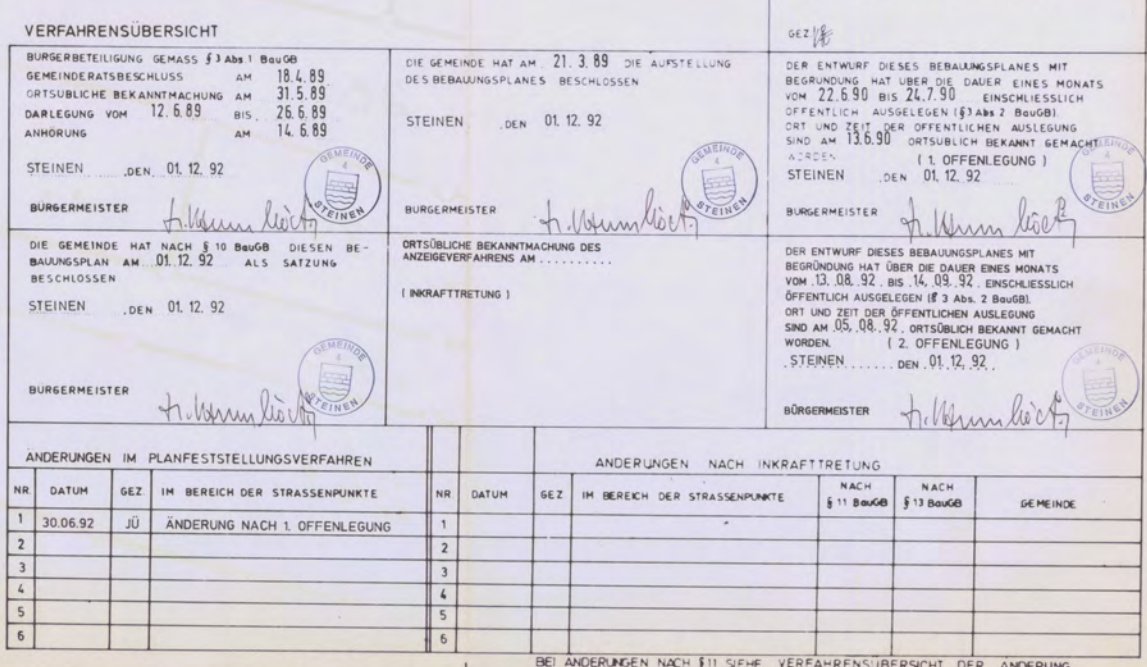 VERFAHRENSÜBERSICHT
GEZ.
BURGERBETEILIGUNG GEMASS § 3 Abs. 1 BauGB
GEMEINDERATSBESCHLUSS AM 18.4.89
ORTSUBLICHE BEKANNTMACHUNG AM 31.5.89
DARLEGUNG VOM 12.6.89 BIS 26.6.89
ANHÖRUNG AM 14.6.89
STEINEN ,DEN 01. 12. 92
GEMEINDE
4
STEINEN
BURGERMEISTER
DIE GEMEINDE HAT AM 21. 3. 89 DIE AUFSTELLUNG
DES BEBAUUNGSPLANES BESCHLOSSEN
STEINEN ,DEN 01. 12. 92
GEMEINDE
4
STEINEN
BURGERMEISTER
DER ENTWURF DIESES BEBAUUNGSPLANES MIT
BEGRUNDUNG HAT UBER DIE DAUER EINES MONATS
VOM 22.6.90 BIS 24.7.90 EINSCHLIESSLICH
OFFENTLICH AUSGELEGEN (§ 3 Abs 2 BauGB).
ORT UND ZEIT DER OFFENTLICHEN AUSLEGUNG
SIND AM 13.6.90 ORTSUBLICH BEKANNT GEMACHT
WORDEN ( 1. OFFENLEGUNG )
STEINEN ,DEN 01. 12. 92
GEMEINDE
4
STEINEN
BURGERMEISTER
DIE GEMEINDE HAT NACH § 10 BauGB DIESEN BE-
BAUUNGSPLAN AM 01. 12. 92 ALS SATZUNG
BESCHLOSSEN
STEINEN ,DEN 01. 12. 92
GEMEINDE
4
STEINEN
BURGERMEISTER
ORTSÜBLICHE BEKANNTMACHUNG DES
ANZEIGEVERFAHRENS AM ..........
( INKRAFTTRETUNG )
DER ENTWURF DIESES BEBAUUNGSPLANES MIT
BEGRÜNDUNG HAT ÜBER DIE DAUER EINES MONATS
VOM 13. 08. 92 . BIS 14. 09. 92 . EINSCHLIESSLICH
ÖFFENTLICH AUSGELEGEN (§ 3 Abs. 2 BauGB).
ORT UND ZEIT DER ÖFFENTLICHEN AUSLEGUNG
SIND AM 05. 08. 92 . ORTSÜBLICH BEKANNT GEMACHT
WORDEN. ( 2. OFFENLEGUNG )
STEINEN DEN 01. 12. 92
GEMEINDE
4
STEINEN
BÜRGERMEISTER
ÄNDERUNGEN IM PLANFESTSTELLUNGSVERFAHREN
NR. DATUM GEZ. IM BEREICH DER STRASSENPUNKTE
1 30.06.92 JÜ ÄNDERUNG NACH 1. OFFENLEGUNG
2
3
4
5
6
ANDERUNGEN NACH INKRAFTTRETUNG
NR. DATUM GEZ. IM BEREICH DER STRASSENPUNKTE NACH § 11 BauGB NACH § 13 BauGB GEMEINDE
1
2
3
4
5
6
BEI ANDERUNGEN NACH §11 SIEHE VERFAHRENSUBERSICHT DER ANDERUNG